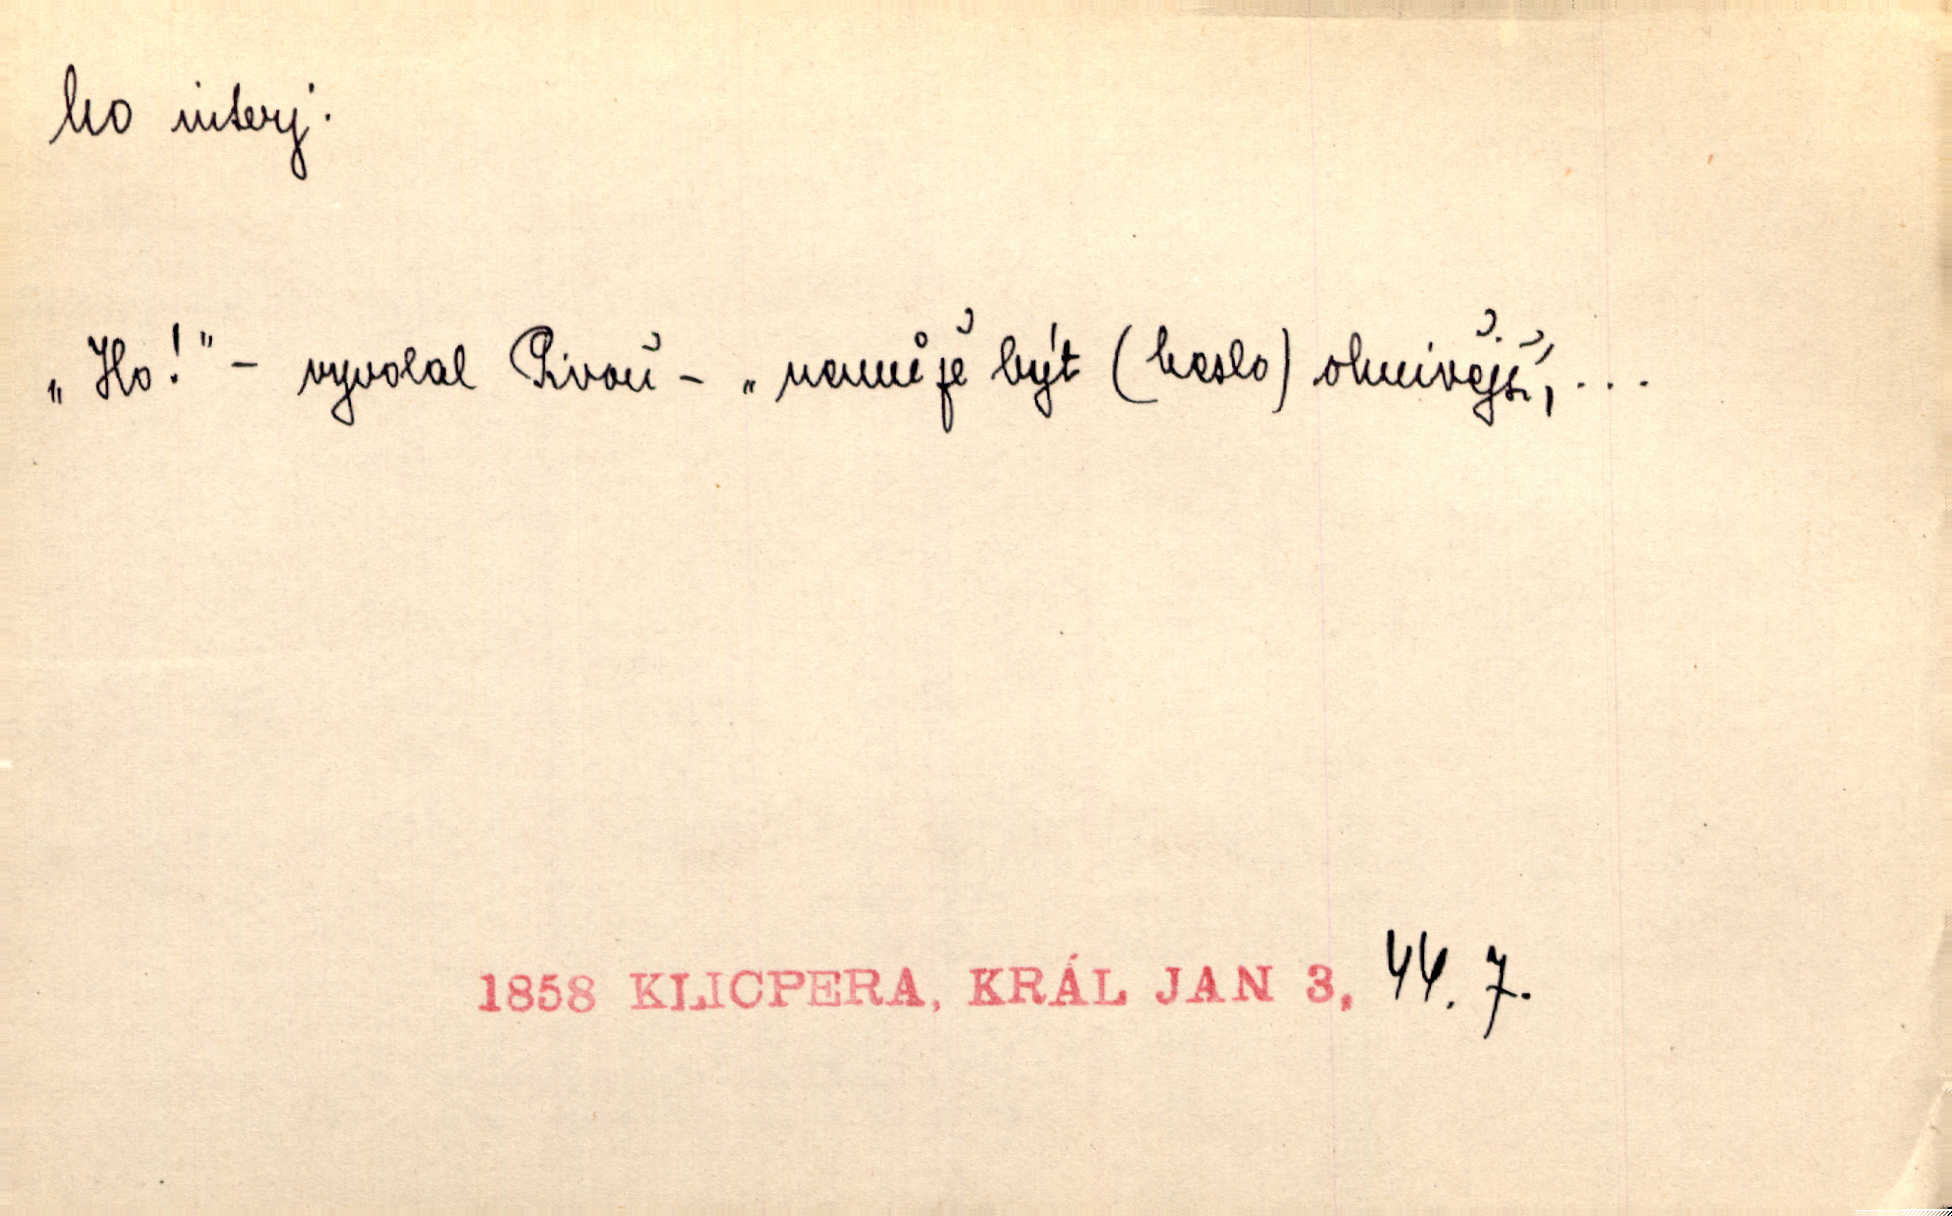 ho interj.
„Ho!" – vyvolal Pivoň – „nemůže být (heslo) ohnivější, ...
1858 KLICPERA, KRÁL JAN 3, 44. 7.